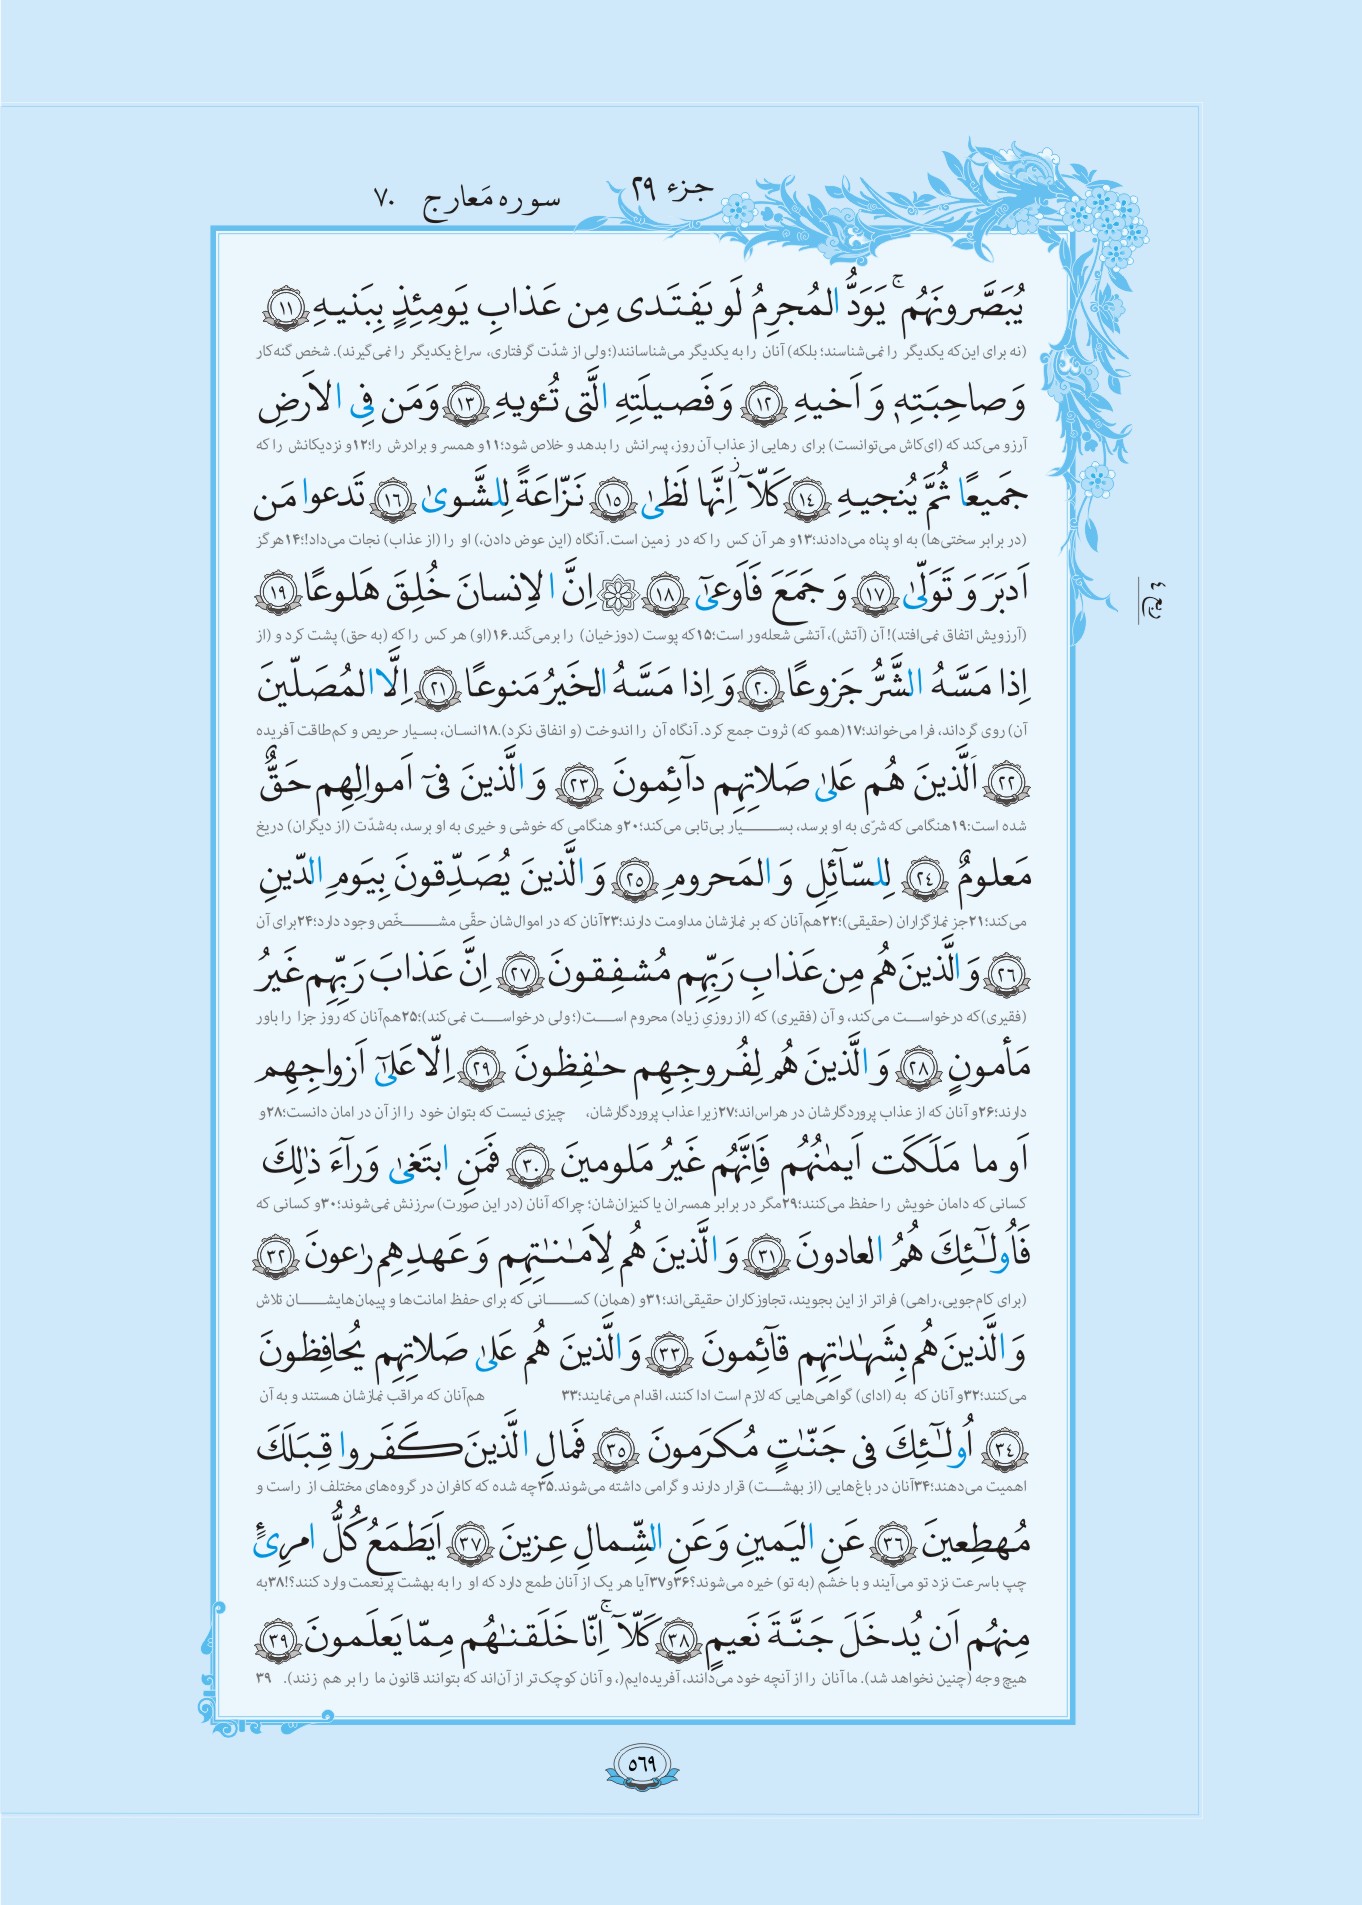 جزء ۲۹
سوره مَعارج ۷۰
يُبَصَّرونَهُم ۚ يَوَدُّ المُجرِمُ لَو يَفتَدى مِن عَذابِ يَومِئِذٍ بِبَنيهِ ﴿۱۱﴾
(نه برای این‌که یکدیگر را نمی‌شناسند؛ بلکه) آنان را به یکدیگر می‌شناسانند(؛ ولی از شدّت گرفتاری، سراغ یکدیگر را نمی‌گیرند). شخص گنه‌کار
وَ صاحِبَتِهِ وَ اَخيهِ ﴿۱۲﴾ وَ فَصيلَتِهِ الَّتى تُـٔويهِ ﴿۱۳﴾ وَ مَن فِى الاَرضِ
آرزو می‌کند که (ای‌کاش می‌توانست) برای رهایی از عذاب آن روز، پسرانش را بدهد و خلاص شود؛۱۱و همسر و برادرش را؛۱۲و نزدیکانش را که
جَميعًا ثُمَّ يُنجيهِ ﴿۱۴﴾ كَلّآ ۖ اِنَّها لَظىٰ ﴿۱۵﴾ نَزّاعَةً لِلشَّوىٰ ﴿۱۶﴾ تَدعوا مَن
(در برابر سختی‌ها) به او پناه می‌دادند؛۱۳و هر آن کس را که در زمین است. آنگاه (این عوض دادن،) او را (از عذاب) نجات می‌داد!؛۱۴هرگز
اَدبَرَ وَ تَوَلّىٰ ﴿۱۷﴾ وَ جَمَعَ فَاَوعىٰٓ ﴿۱۸﴾ ۞ اِنَّ الاِنسانَ خُلِقَ هَلوعًا ﴿۱۹﴾
(آرزویش اتفاق نمی‌افتد)! آن (آتش)، آتشی شعله‌ور است؛۱۵که پوست (دوزخیان) را برمی‌کَند.۱۶(او) هر کس را که (به حق) پشت کرد و (از
ربع ٤
اِذا مَسَّهُ الشَّرُّ جَزوعًا ﴿۲۰﴾ وَ اِذا مَسَّهُ الخَيرُ مَنوعًا ﴿۲۱﴾ اِلَّا المُصَلّينَ
آن) روی گرداند، فرا می‌خواند؛۱۷(همو که) ثروت جمع کرد. آنگاه آن را اندوخت (و انفاق نکرد).۱۸انسان، بسیار حریص و کم‌طاقت آفریده
﴿۲۲﴾ اَلَّذينَ هُم عَلىٰ صَلاتِهِم دآئِمونَ ﴿۲۳﴾ وَ الَّذينَ فىٓ اَموالِهِم حَقٌّ
شده است:۱۹هنگامی که شرّی به او برسد، بسیار بی‌تابی می‌کند؛۲۰و هنگامی که خوشی و خیری به او برسد، به‌شدّت (از دیگران) دریغ
مَعلومٌ ﴿۲۴﴾ لِلسّآئِلِ وَ المَحرومِ ﴿۲۵﴾ وَ الَّذينَ يُصَدِّقونَ بِيَومِ الدّينِ
می‌کند؛۲۱جز نمازگزاران (حقیقی)؛۲۲هم‌آنان که بر نمازشان مداومت دارند؛۲۳آنان که در اموال‌شان حقّی مشخّص وجود دارد؛۲۴برای آن
﴿۲۶﴾ وَ الَّذينَ هُم مِن عَذابِ رَبِّهِم مُشفِقونَ ﴿۲۷﴾ اِنَّ عَذابَ رَبِّهِم غَيرُ
(فقیری)که درخواست می‌کند، و آن (فقیری) که (از روزیِ زیاد) محروم است(؛ ولی درخواست نمی‌کند)؛۲۵هم‌آنان که روز جزا را باور
مَأمونٍ ﴿۲۸﴾ وَ الَّذينَ هُم لِفُروجِهِم حـٰفِظونَ ﴿۲۹﴾ اِلّا عَلىٰٓ اَزواجِهِم
دارند؛۲۶و آنان که از عذاب پروردگارشان در هراس‌اند؛۲۷زیرا عذاب پروردگارشان، چیزی نیست که بتوان خود را از آن در امان دانست؛۲۸و
اَو ما مَلَكَت اَيمـٰنُهُم فَاِنَّهُم غَيرُ مَلومينَ ﴿۳۰﴾ فَمَنِ ابتَغىٰ وَرآءَ ذٰلِكَ
کسانی که دامان خویش را حفظ می‌کنند؛۲۹مگر در برابر همسران یا کنیزان‌شان؛ چراکه آنان (در این صورت) سرزنش نمی‌شوند؛۳۰و کسانی که
فَاُولـٰٓئِكَ هُمُ العادونَ ﴿۳۱﴾ وَ الَّذينَ هُم لِاَمـٰنـٰتِهِم وَ عَهدِهِم رٰعونَ ﴿۳۲﴾
(برای کام‌جویی، راهی) فراتر از این بجویند، تجاوزکاران حقیقی‌اند؛۳۱و (همان) کسانی که برای حفظ امانت‌ها و پیمان‌هایشان تلاش
وَ الَّذينَ هُم بِشَهـٰدٰتِهِم قآئِمونَ ﴿۳۳﴾ وَ الَّذينَ هُم عَلىٰ صَلاتِهِم يُحافِظونَ
می‌کنند؛۳۲و آنان که به (ادای) گواهی‌هایی که لازم است ادا کنند، اقدام می‌نمایند؛۳۳ هم‌آنان که مراقب نمازشان هستند و به آن
﴿۳۴﴾ اُولـٰٓئِكَ فى جَنّـٰتٍ مُكرَمونَ ﴿۳۵﴾ فَمالِ الَّذينَ كَفَروا قِبَلَكَ
اهمیت می‌دهند؛۳۴آنان در باغ‌هایی (از بهشت) قرار دارند و گرامی داشته می‌شوند.۳۵چه شده که کافران در گروه‌های مختلف از راست و
مُهطِعينَ ﴿۳۶﴾ عَنِ اليَمينِ وَ عَنِ الشِّمالِ عِزينَ ﴿۳۷﴾ اَيَطمَعُ كُلُّ امرِئٍ
چپ باسرعت نزد تو می‌آیند و با خشم (به تو) خیره می‌شوند؟۳۶و۳۷آیا هر یک از آنان طمع دارد که او را به بهشت پرنعمت وارد کنند؟!۳۸به
مِنهُم اَن يُدخَلَ جَنَّةَ نَعيمٍ ﴿۳۸﴾ كَلّآ ۚ اِنّا خَلَقنـٰهُم مِمّا يَعلَمونَ ﴿۳۹﴾
هیچ وجه (چنین نخواهد شد). ما آنان را از آنچه خود می‌دانند، آفریده‌ایم(، و آنان کوچک‌تر از آن‌اند که بتوانند قانون ما را بر هم زنند). ۳۹
۵۶۹